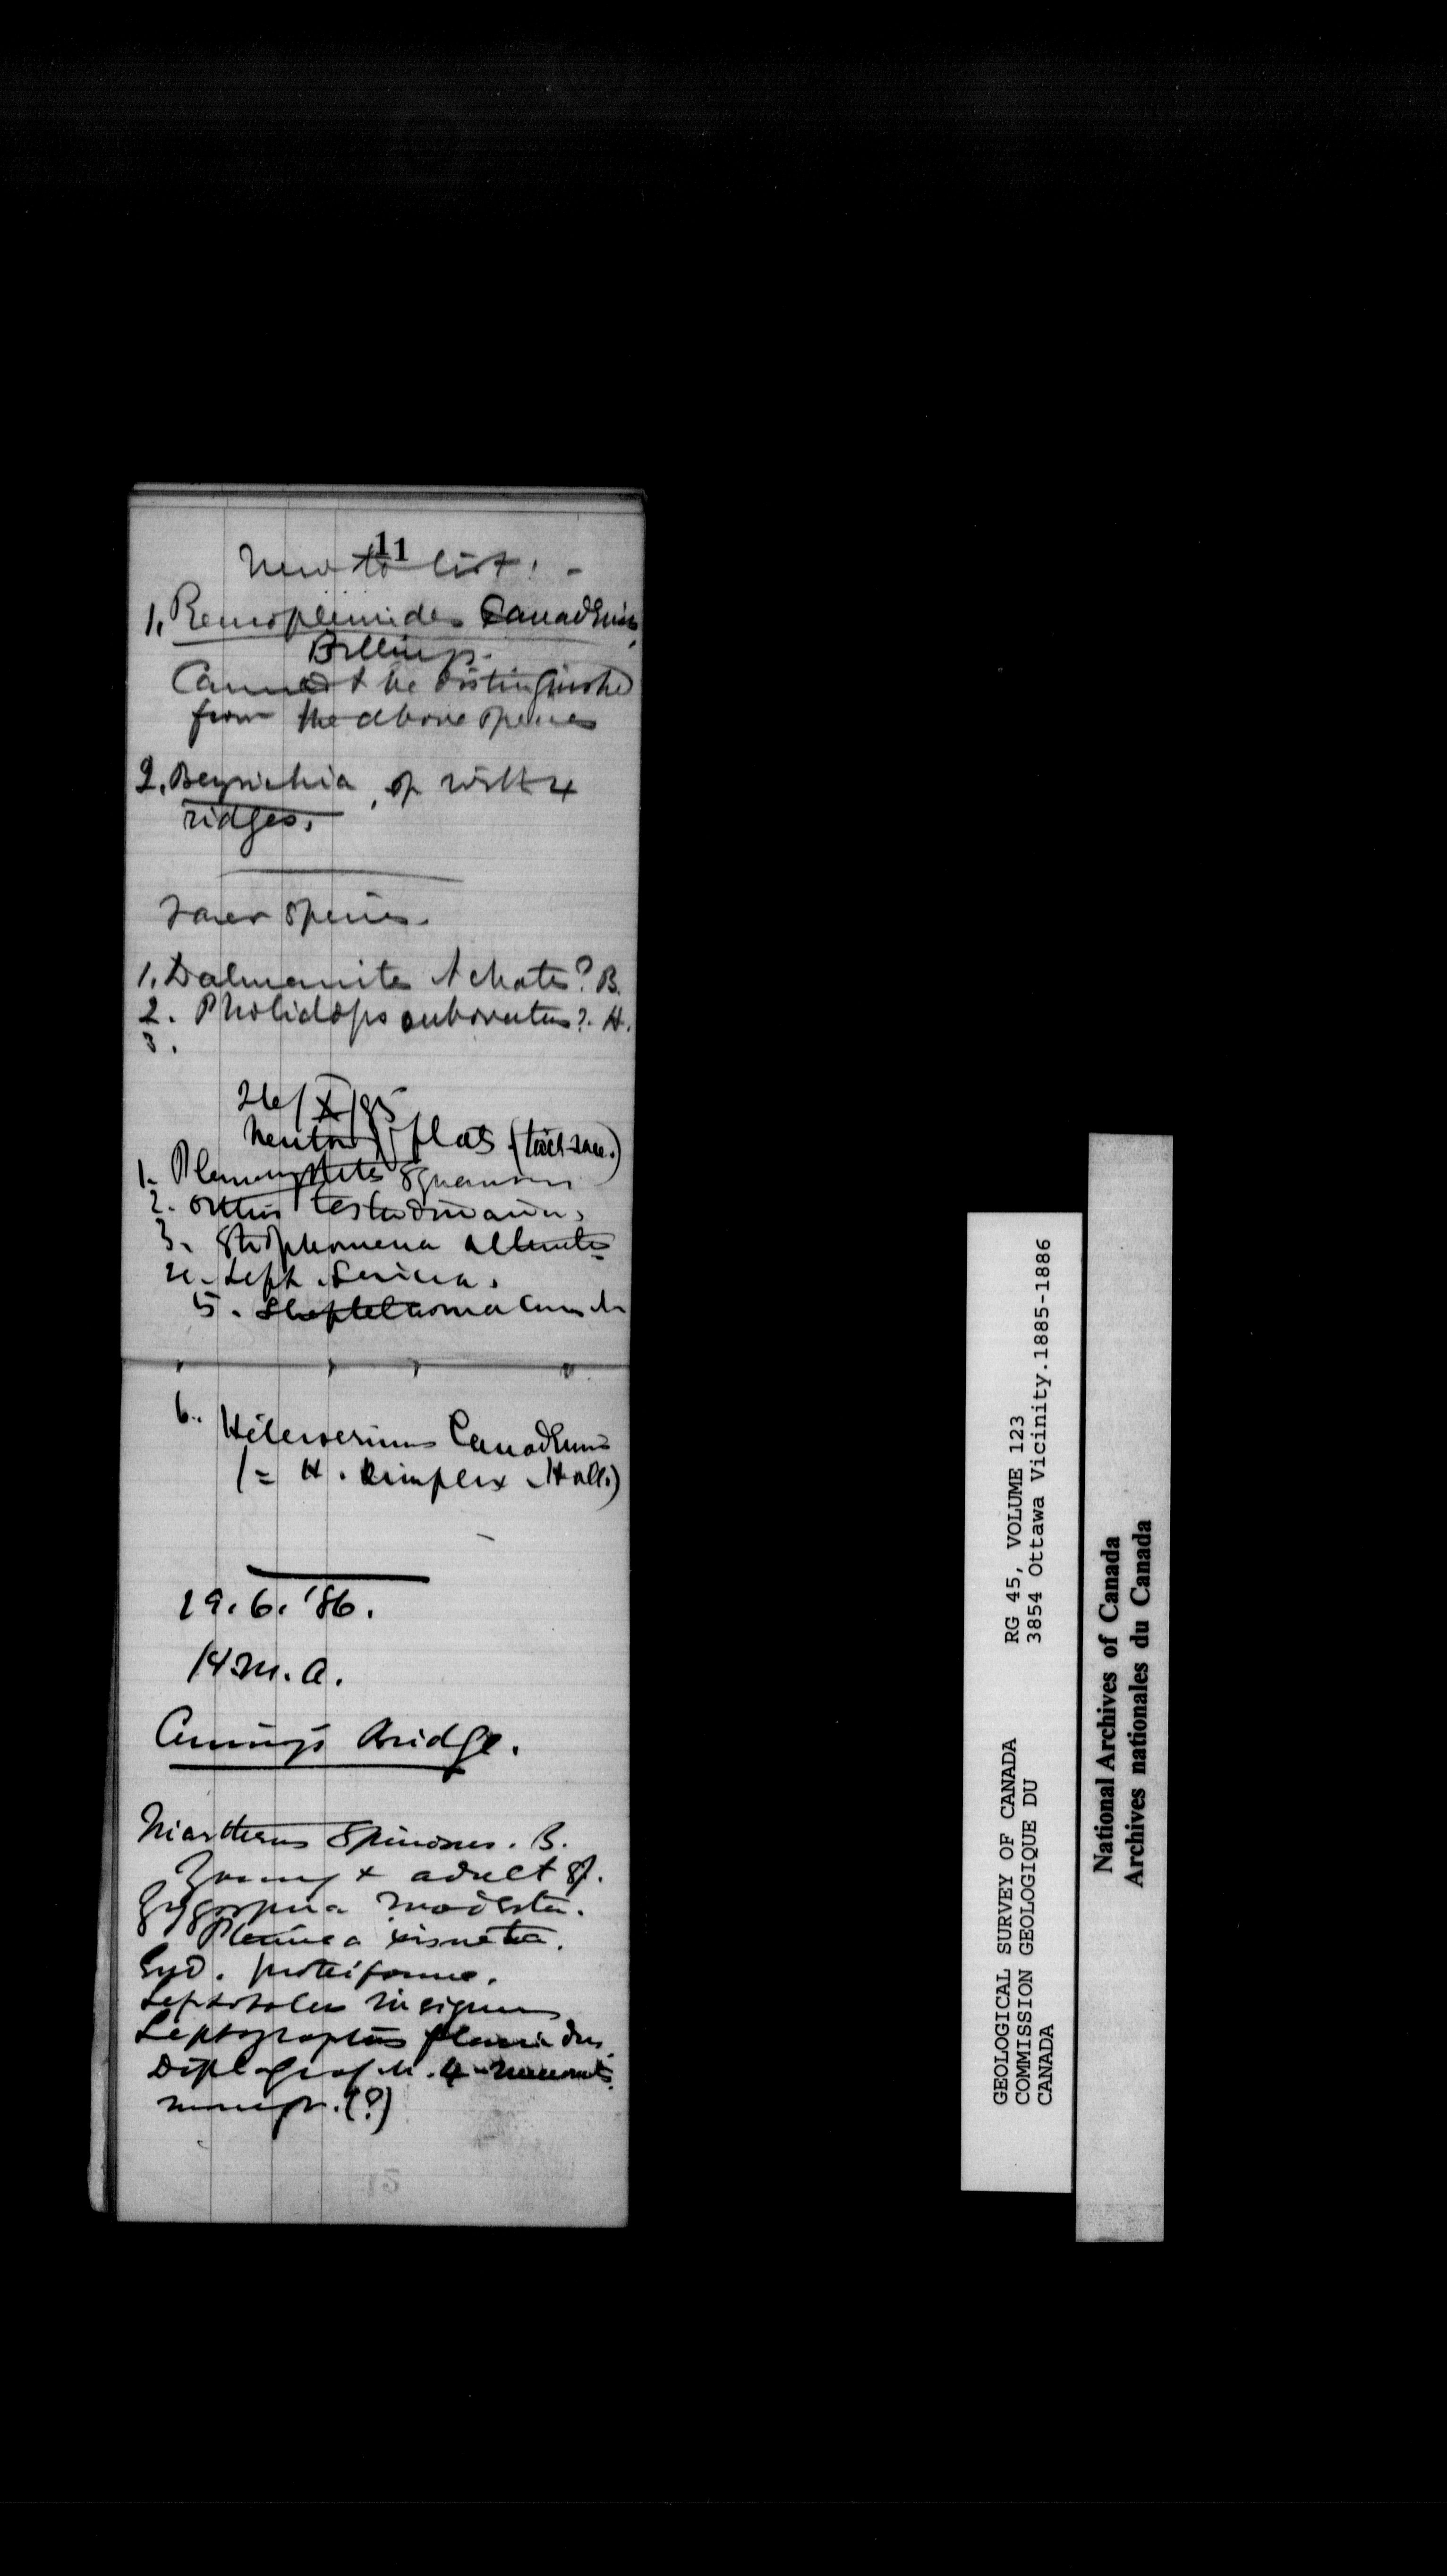 11
New to list: -
1. Remopleurides Canadensis,
Billings.
Cannot be distinguished
from the above species
2. Beyrichia, sp with 4
ridges.
Rarer species.
1. Dalmanites Achates? B.
2. Pholidops subovatus? H.
3.
26/X/85
flats (tail-race.)
1. squamosa
2. Orthis testudinaria,
3. Strophomena alternata
4. Lept. sericea.
5. Streptelasma
6. Heterocrinus Canadensis
(= H. simplex Hall.)
29.6.'86.
H.M.A.
Cumings Bridge.
Triarthrus spinosus. B.
Young & adult sp.
Zygospira modesta.
End. proteiforme.
Leptobolus insignis
Leptograptus flaccidus.
Diplograpt. 4-mucronatus.
(?)
GEOLOGICAL SURVEY OF CANADA
COMMISSION GEOLOGIQUE DU
CANADA
RG 45, VOLUME 123
3854 Ottawa Vicinity.1885-1886
National Archives of Canada
Archives nationales du Canada